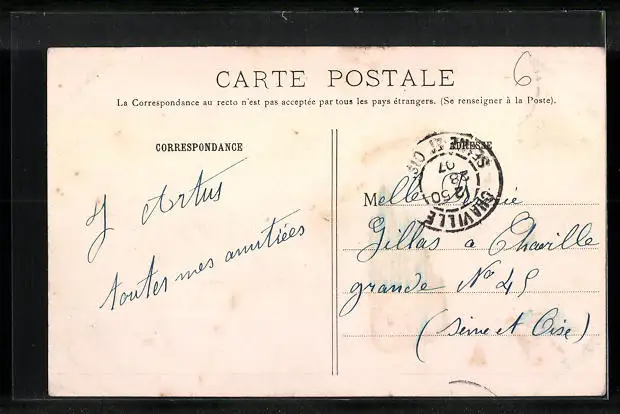 6
CARTE POSTALE
La Correspondance au recto n'est pas acceptée par tous les pays étrangers. (Se renseigner à la Poste).
CORRESPONDANCE
J Artus
toutes mes amitiées
ADRESSE
CHAVILLE
SEINE ET OISE
12 50
28
07
Melle
Gillas a Chaville
grande No 45
(Seine et Oise)